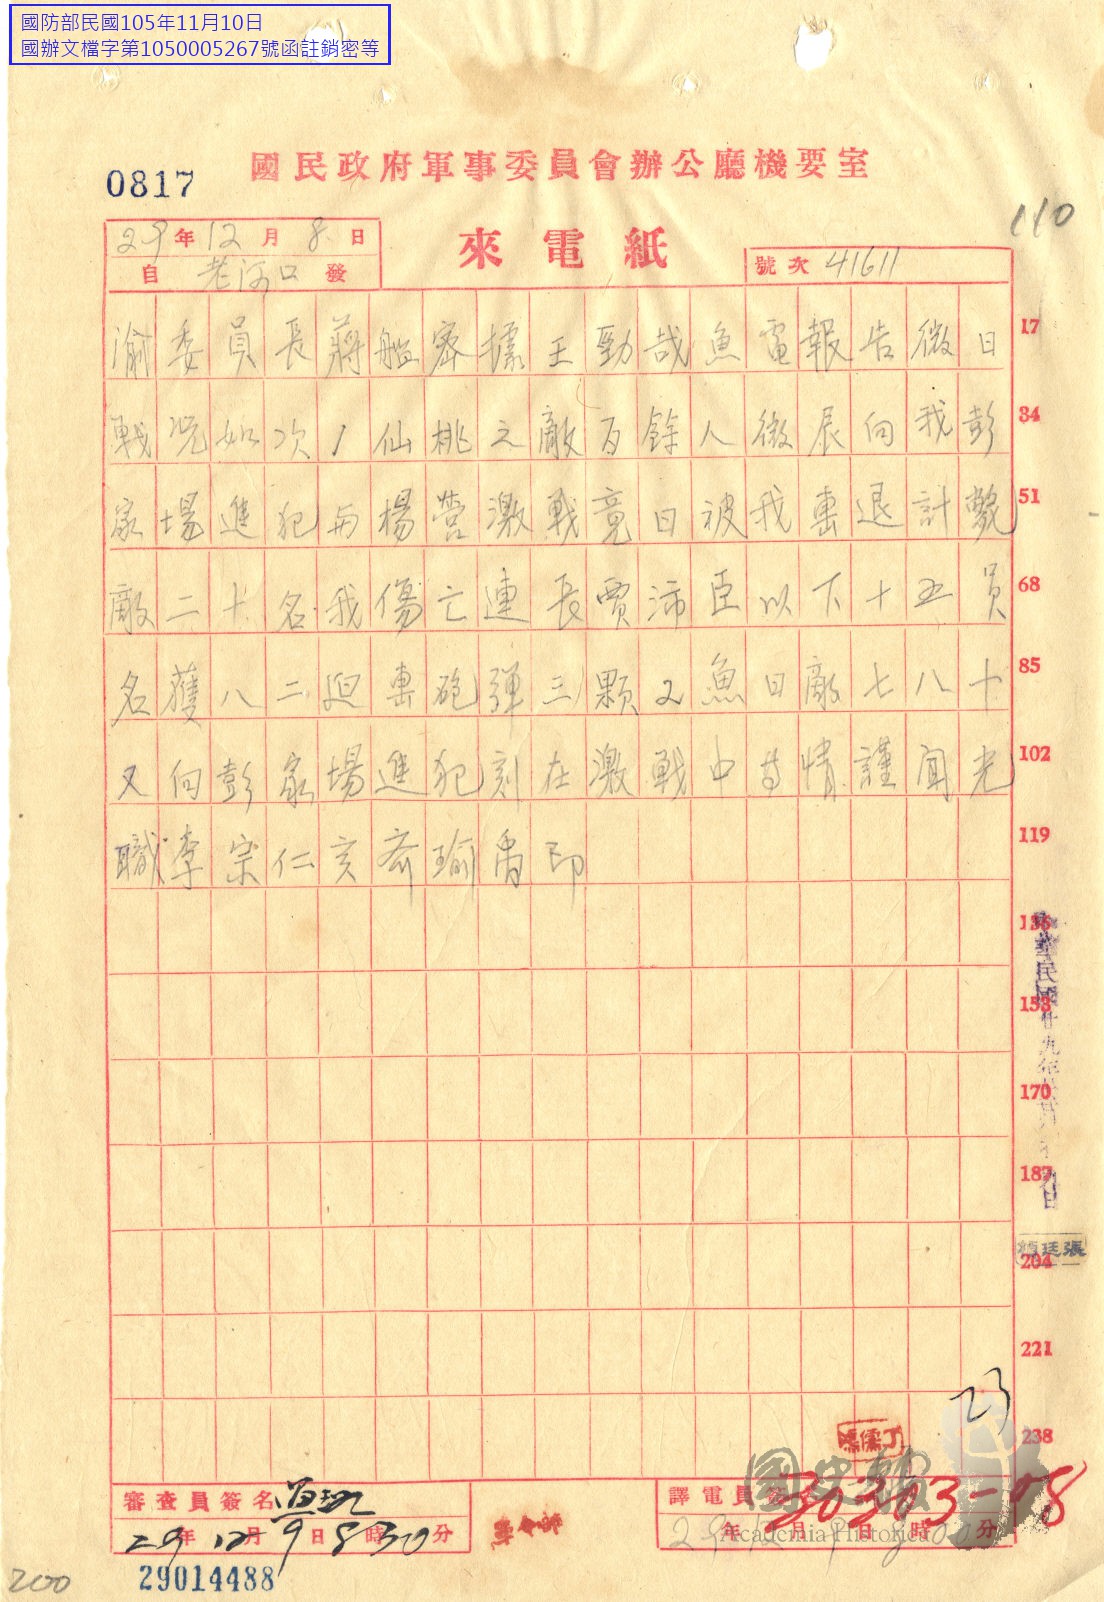 國防部民國105年11月10日
國辦文檔字第1050005267號函註銷密等
國民政府軍事委員會辦公廳機要室
0817
110
29年12月8日
來電紙
自老河口發
號次 41611
渝委員長蔣艦密據王勁哉魚電報告微日
17
戰況如次1仙桃之敵百餘人微辰向我彭
34
家場進犯與楊營激戰竟日被我擊退計斃
51
敵二十名我傷亡連長賈沛臣以下十五員
68
名獲八二迫擊砲彈三顆2魚日敵七八十
85
又向彭家場進犯刻在激戰中等情謹聞光
102
職李宗仁亥齊瑜禹印
119
136
153
170
187
204
221
238
中華民國廿九年
張廷楨
23
審查員簽名
29年12月9日8時30分
譯電員
29年12月9日8時分
30303-08
國史館
Academia Historica
29014488
200